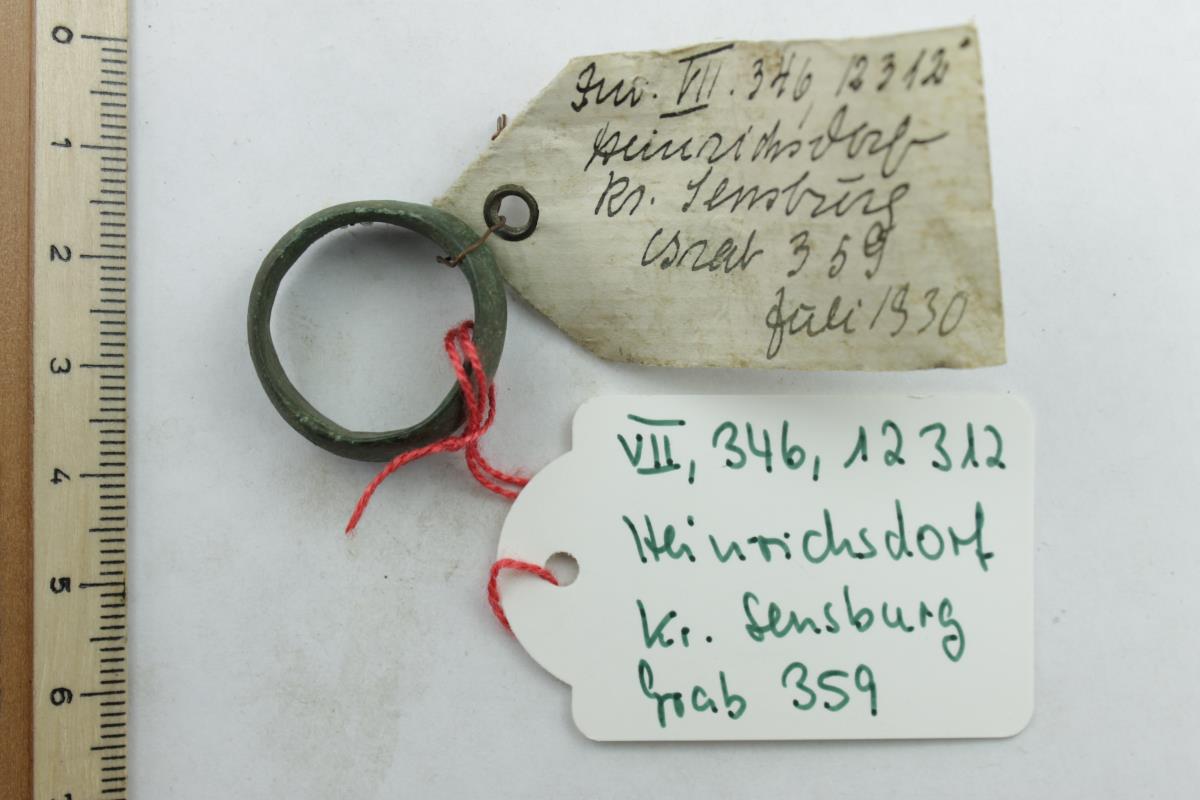 Inv. VII. 346, 12312
Heinrichsdorf
Kr. Sensburg
Grab 359
Juli 1930
VII, 346, 12312
Heinrichsdorf
Kr. Sensburg
Grab 359
0
1
2
3
4
5
6